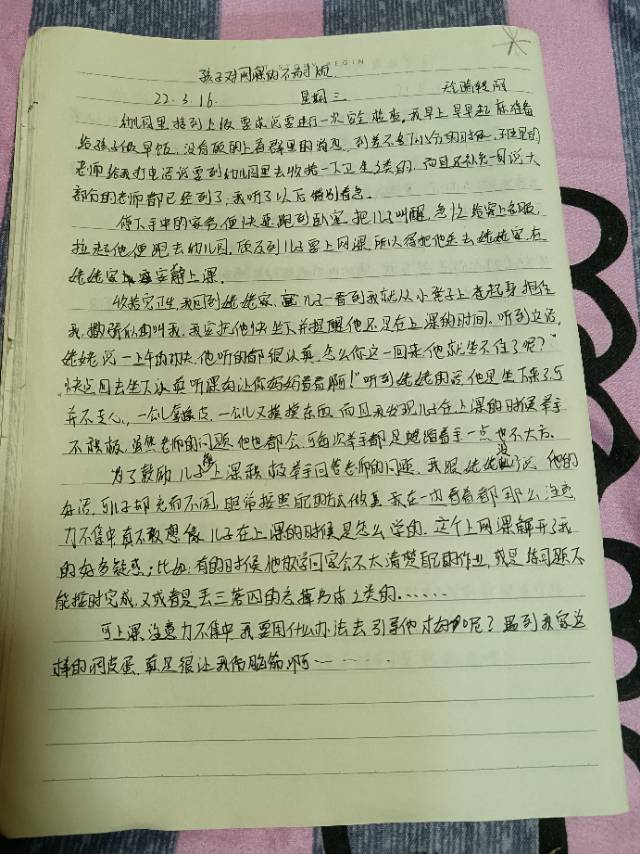 孩子对网课的不耐烦
22.3.16 星期三
幼儿园里接到上级要求说要进行一次安全检查。我早上早早起床准备
给孩子做早饭,没有顾的上看群里的消息,到差不多7:15分的时候,班里的
老师给我打电话说要到幼儿园里去收拾一下卫生之类的,而且还说
部分的老师都已经到了,我听了以后特别着急。
停下手中的家务便快速跑到卧室,把儿子叫醒,急忙给穿上衣服,
拉起他便跑去幼儿园,顾及到儿子要上网课,所以得把他送去姥姥家,在
姥姥家安静上课。
收拾完卫生,我回到姥姥家,儿子一看到我就从小凳子上站起身抱住
我,撒娇似的叫我,我安抚他快坐下并提醒他还是在上课的时间。听到这话,
姥姥说一上午的功夫,他听的都很认真,怎么你这一回来他就坐不住了呢?"
"快点回去坐下认真听课为让你妈妈看看啊!"听到姥姥的话,他是坐下来了,可
并不走心,一会儿拿橡皮,一会儿又摸摸东西,而且我发现儿子在上课的时候举手
不积极,虽然老师的问题他也都会,可每次举手都是蜷缩着手一点也不大方。
为了鼓励儿子上课积极举手回答老师的问题,我跟姥姥说他的
好话,可儿子却充而不闻,照常按照自己的方式做真,我在一边看着都那么注意
力不集中,真不敢想像儿子在上课的时候是怎么学的,这个上网课解开了我
的好多疑惑;比如:有的时候他放学回家会不太清楚自己的作业,或是练习题不
能按时完成,又或者是丢三落四的忘掉书本之类的......
可上课注意力不集中我要用什么办法去引导他才好呢?遇到我家这
样的调皮蛋,真是很让我伤脑筋啊......